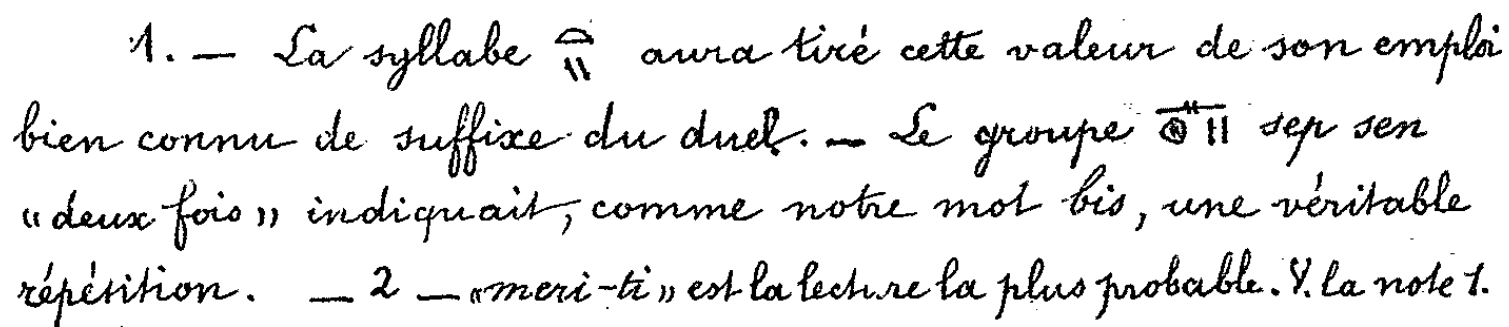 1. — La syllabe 𓏏𓏭 aura tiré cette valeur de son emploi
bien connu de suffixe du duel. — Le groupe 𓊃𓊗𓏮 sep sen
« deux fois » indiquait, comme notre mot bis, une véritable
répétition. — 2 — « meri-ti » est la lecture la plus probable. V. la note 1.